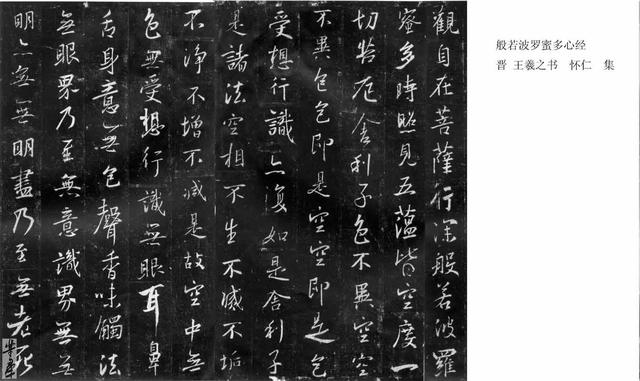 觀自在菩薩行深般若波羅
蜜多時照見五蘊皆空度一
切苦厄舍利子色不異空空
不異色色即是空空即是色
受想行識亦復如是舍利子
是諸法空相不生不滅不垢
不淨不增不減是故空中無
色無受想行識無眼耳鼻
舌身意無色聲香味觸法
無眼界乃至無意識界無無
明亦無無明盡乃至無老死
般若波罗蜜多心经
晋 王羲之书 怀仁 集